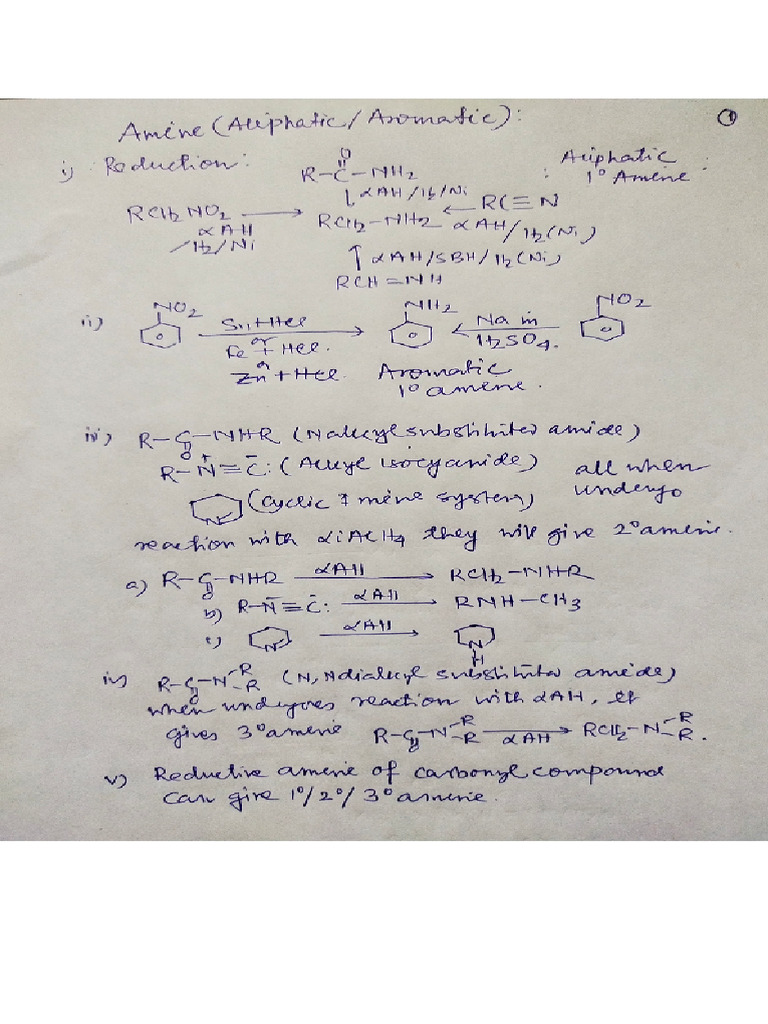 ①
Amine (Aliphatic/Aromatic):
i) Reduction: R-C(=O)-NH2 : Aliphatic 1° Amine :
↓ LAH/H2/Ni
RCH2NO2 → RCH2-NH2 ← RC≡N
LAH/H2/Ni LAH/H2(Ni)
↑ LAH/SBH/H2(Ni)
RCH=NH
ii) NO2 Sn+HCl → NH2 ← Na in H2SO4. NO2
or Fe + HCl.
or Zn + HCl. Aromatic 1° amine.
iii) R-C(=O)-NHR (N alkyl substituted amide)
R-N⁺≡C⁻: (Alkyl isocyanide) all when
N (cyclic imine system) undergo
reaction with LiAlH4 they will give 2° amine.
a) R-C(=O)-NHR LAH → RCH2-NHR
b) R-N≡C: LAH → RNH-CH3
c) N LAH → N-H
iv) R-C(=O)-N(R)(R) (N,N dialkyl substituted amide)
when undergoes reaction with LAH, it
gives 3° amine R-C(=O)-N(R)(R) → LAH RCH2-N(R)(R).
v) Reductive amine of carbonyl compound
can give 1°/2°/3° amine.